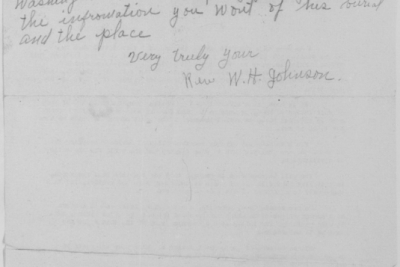 Washing
the infrowation you wont of his burial
and the place
Very truly your
Rev W.H. Johnson.